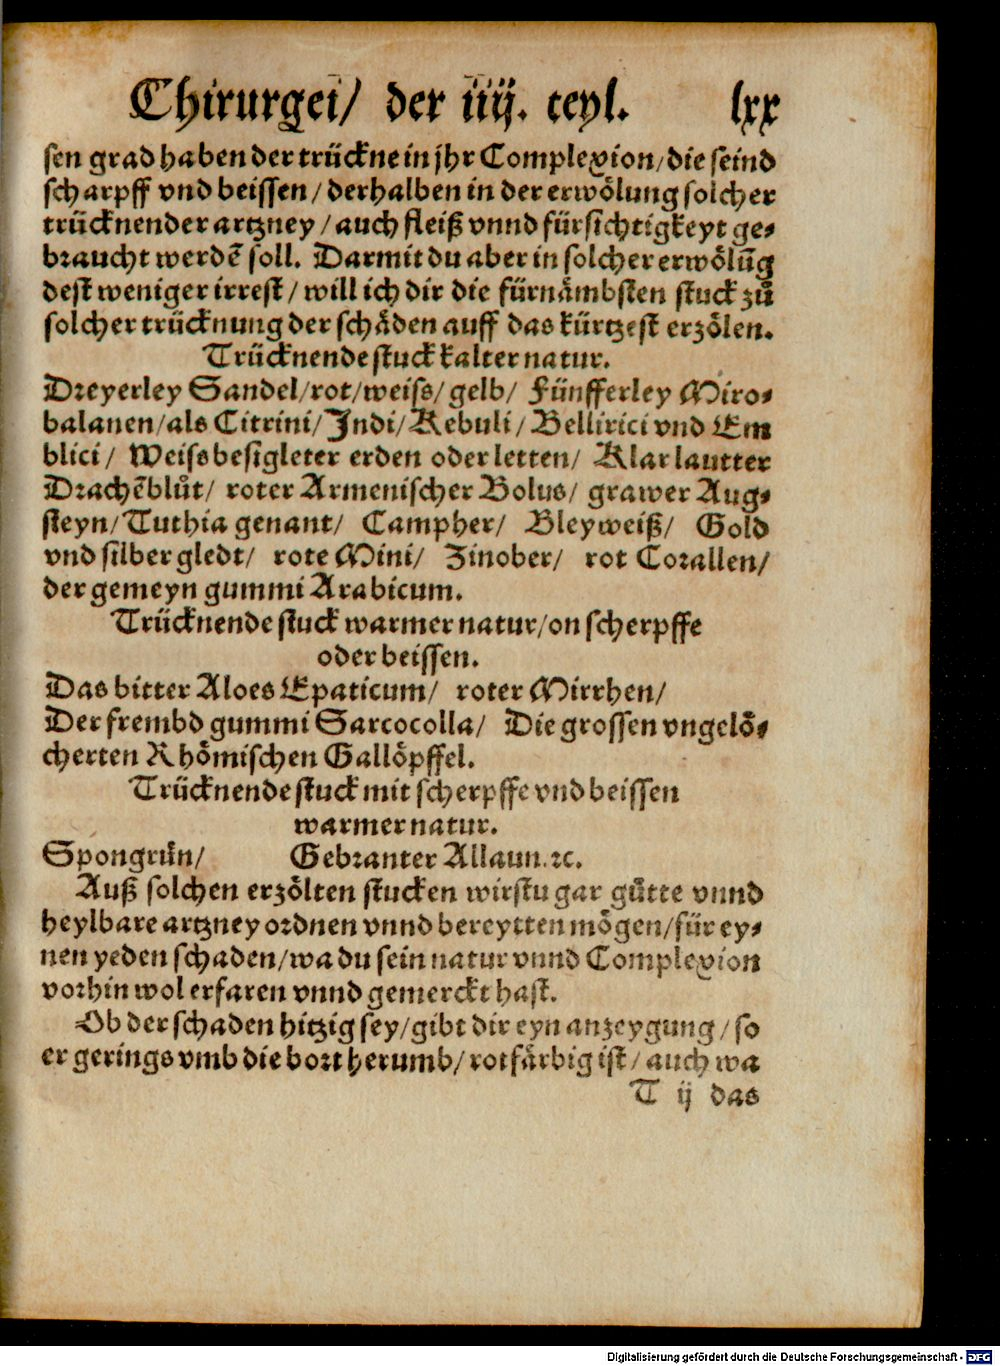 Chirurgei/ der iiij. teyl. lxx
sen grad haben der trückne in jhr Complexion/die seind
scharpff vnd beissen/derhalben in der erwoͤlung solcher
trücknender artzney/auch fleiß vnnd fürsichtigkeyt ge-
braucht werdẽ soll. Darmit du aber in solcher erwoͤlũg
dest weniger irrest/will ich dir die fürnaͤmbsten stuck zuͦ
solcher trücknung der schaͤden auff das kürtzest erzoͤlen.
Trücknende stuck kalter natur.
Dreyerley Sandel/rot/weiss/gelb/ Fünfferley Miro-
balanen/als Citrini/Indi/Kebuli/Bellirici vnd Em
blici/ Weiss besigleter erden oder letten/ Klar lautter
Drachẽbluͦt/ roter Armenischer Bolus/ grawer Aug-
steyn/Tuthia genant/ Campher/ Bleyweiß/ Gold
vnd silber gledt/ rote Mini/ Zinober/ rot Corallen/
der gemeyn gummi Arabicum.
Trücknende stuck warmer natur/on scherpffe
oder beissen.
Das bitter Aloes Epaticum/ roter Mirrhen/
Der frembd gummi Sarcocolla/ Die grossen vngeloͤ-
cherten Rhoͤmischen Galloͤpffel.
Trücknende stuck mit scherpffe vnd beissen
warmer natur.
Spongruͤn/ Gebranter Allaun.ꝛc.
Auß solchen erzoͤlten stucken wirstu gar guͤtte vnnd
heylbare artzney ordnen vnnd bereytten moͤgen/für ey-
nen yeden schaden/wa du sein natur vnnd Complexion
vorhin wol erfaren vnnd gemerckt hast.
Ob der schaden hitzig sey/gibt dir eyn anzeygung/so
er gerings vmb die bort herumb/rotfaͤrbig ist/auch wa
T ij das
Digitalisierung gefördert durch die Deutsche Forschungsgemeinschaft - DFG